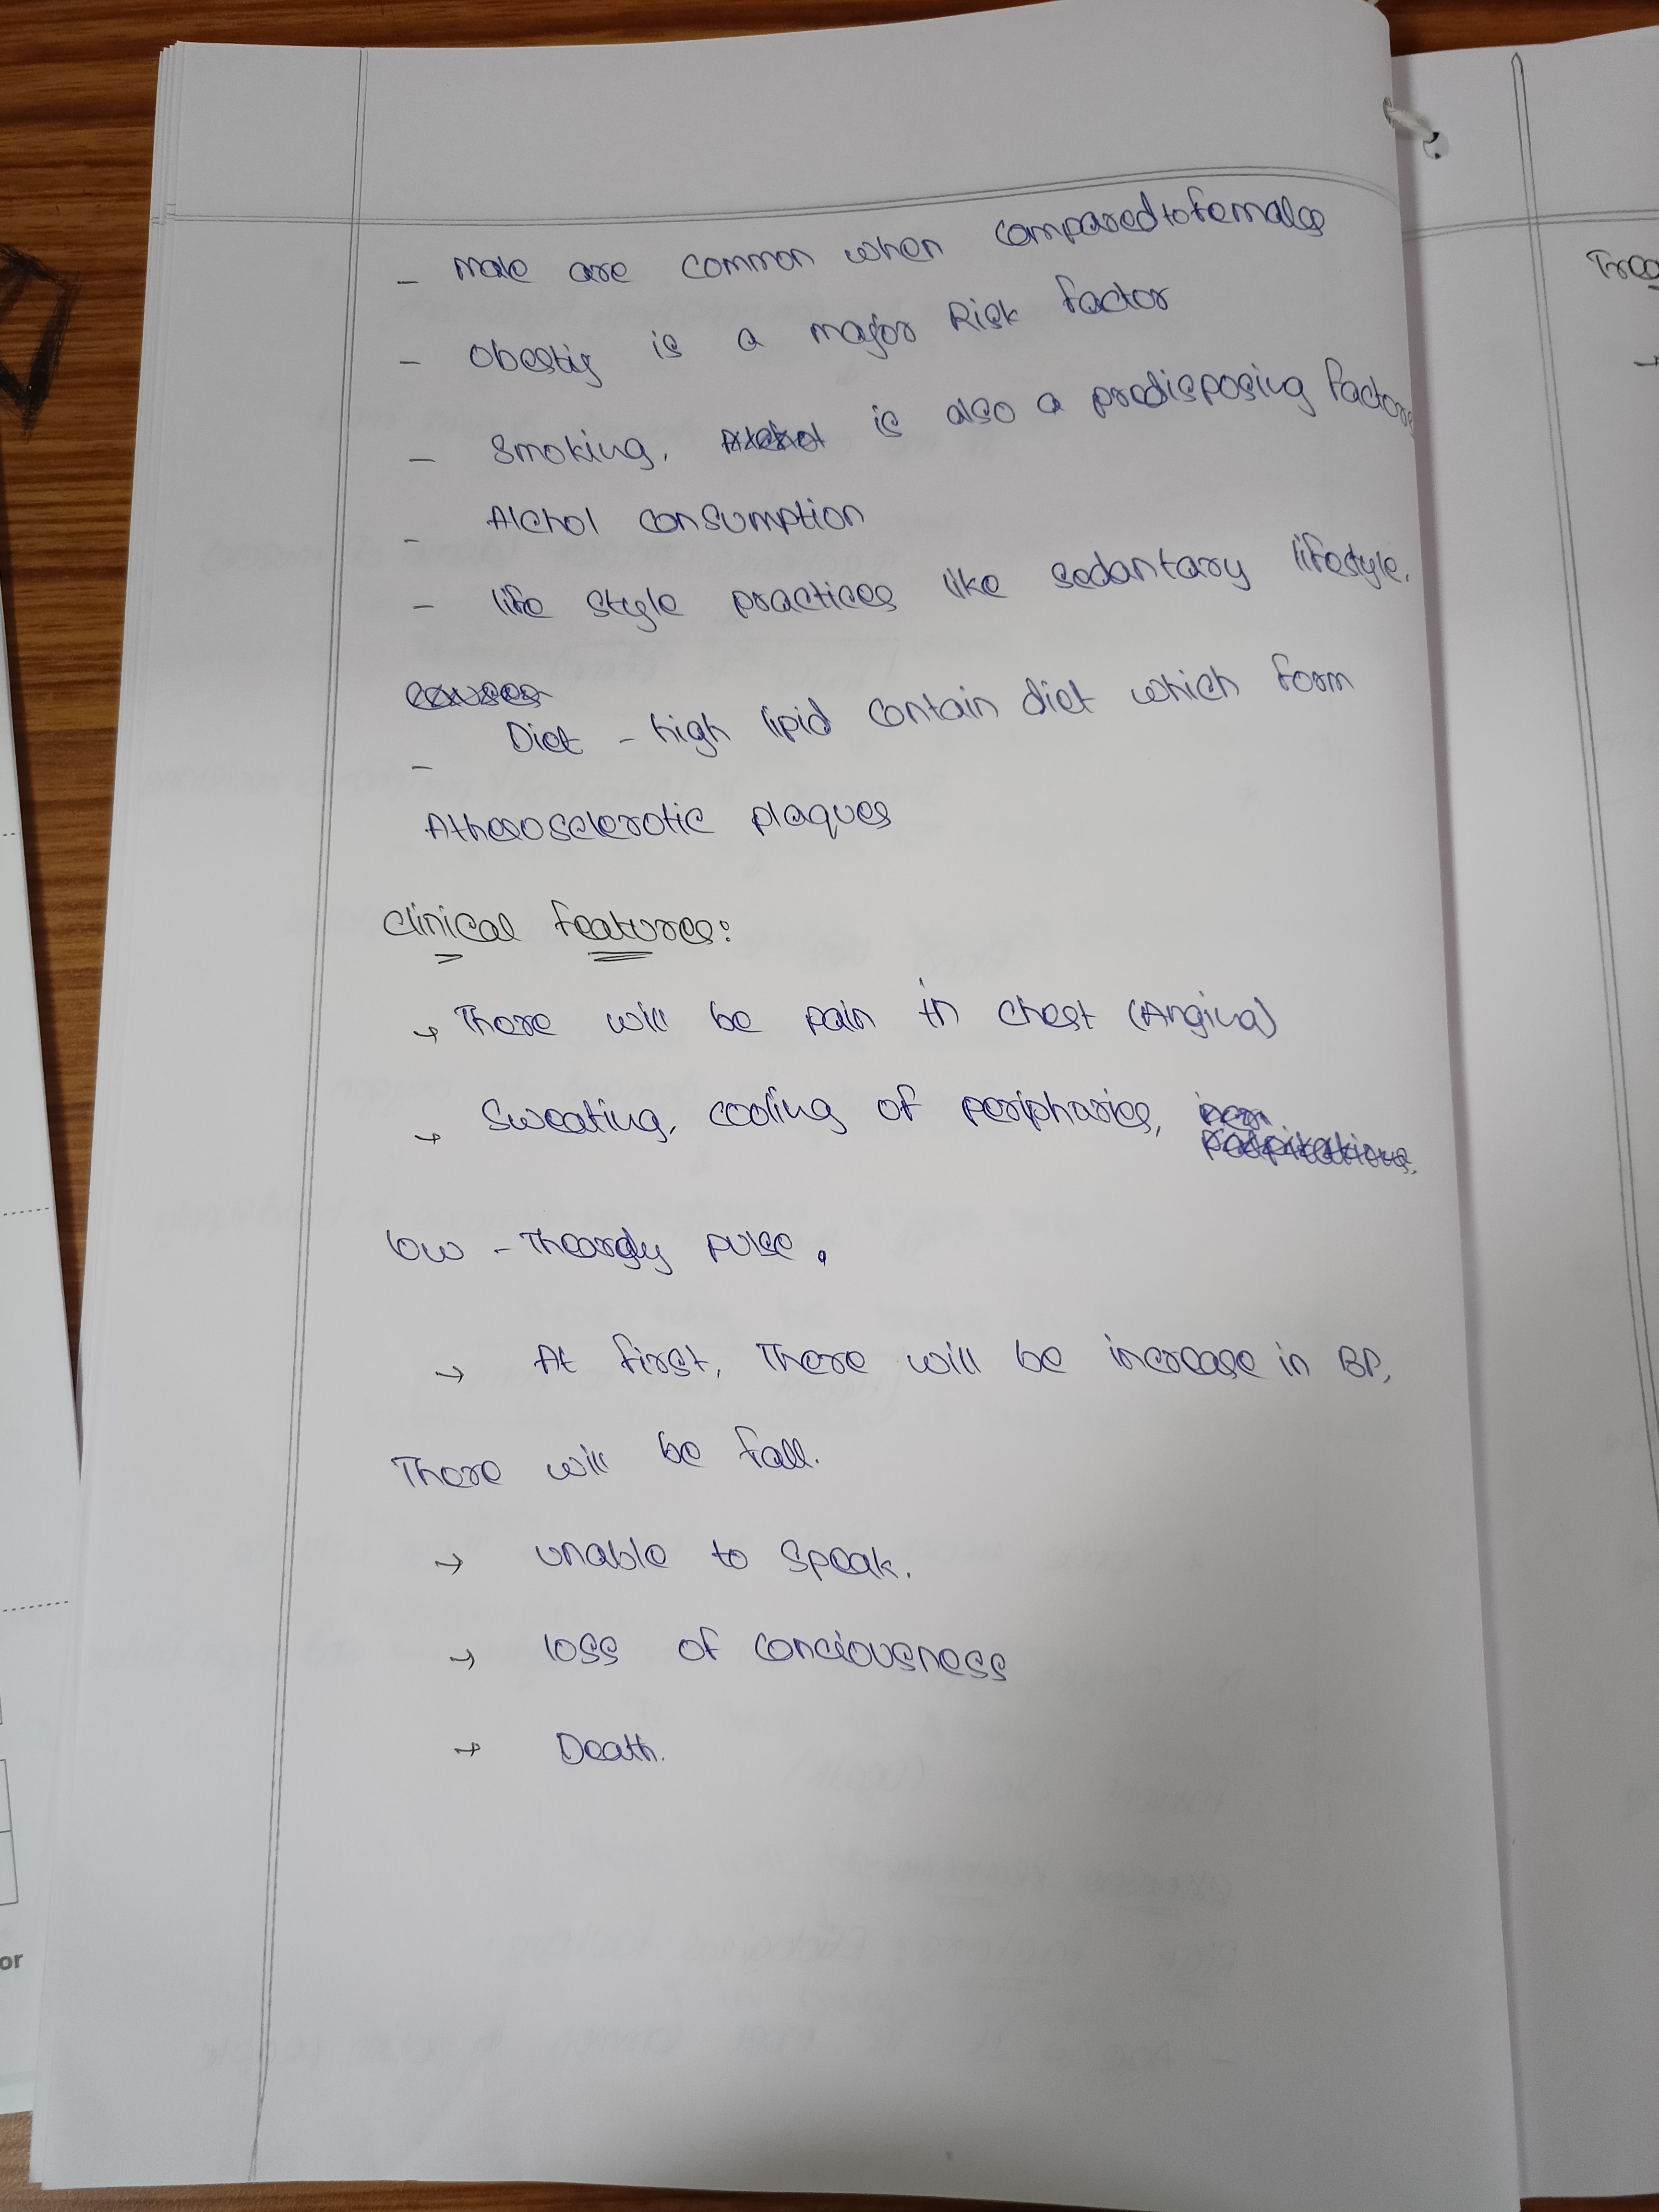 - male are common when compared to females
- Obestiy is a major Risk factor
- Smoking, is also a predisposing factors
- Alchol consumption
- life style practices like sedantary lifestyle.
causes
- Diet - high lipid contain diet which form
Atherosclerotic plaques
Clinical features:
→ There will be pain in chest (Angina)
→ Sweating, cooling of peripharies,
low - Theardy pulse.
→ At first, There will be increase in BP,
There will be fall.
→ unable to speak.
→ loss of conciousness
→ Death.
or